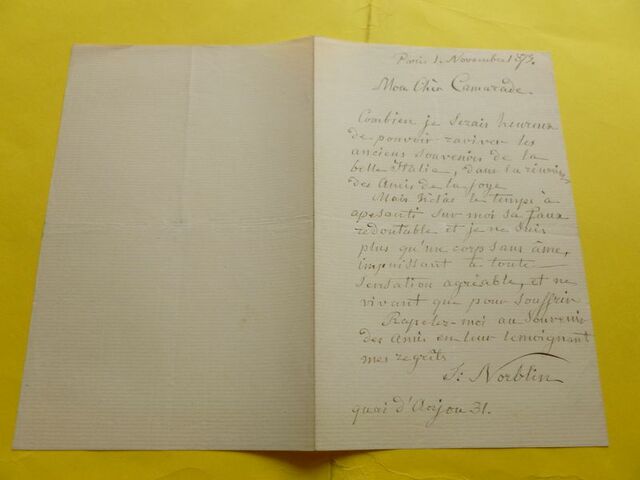 Paris 1. Novembre 1873.
Mon Cher Camarade.
Combien je serais heureux
de pouvoir raviver les
anciens souvenirs de la
belle Italie, dans la réunion
des Amis de la joye
Mais hélas le temps à
apesanti sur moi sa faux
redoutable et je ne suis
plus qu'un corps sans âme,
impuissant à toute
sensation agréable, et ne
vivant que pour souffrir
Rapelez-moi au Souvenir
des Amis en leur temoignant
mes regrets
S: Norblin
quai d'Anjou 31.